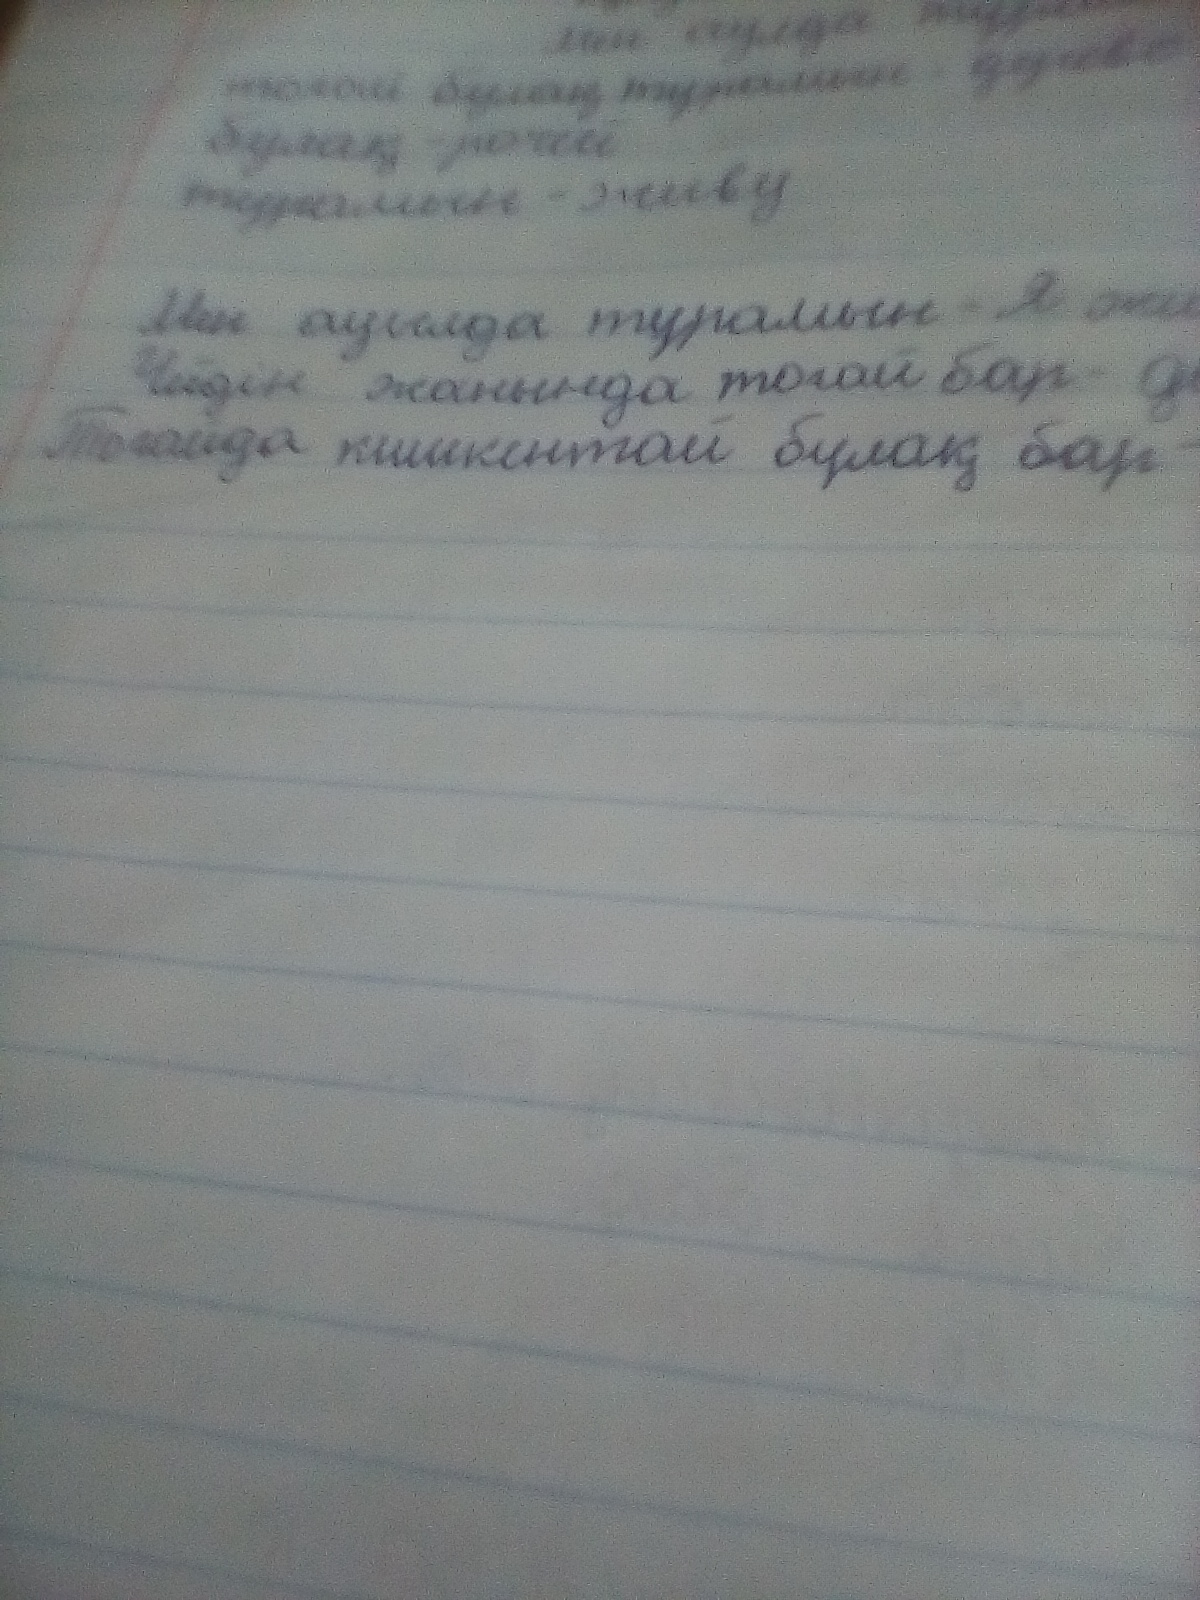 мен аулда
тогай булақ турамын - деревс
булақ - ручей
турамын - живу
Мен ауылда турамын - Я жи
Үйдін жанында тогай бар - д
Тогайда кишкентай булақ бар -